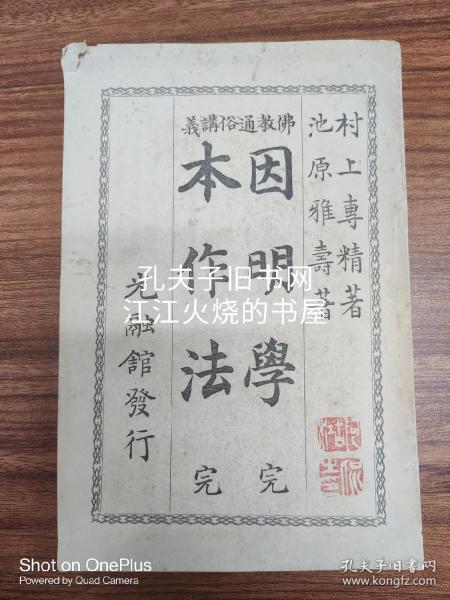 村上專精著
池原雅壽著
佛教通俗講義
因明學 完
本作法 完
光融館發行
孔夫子旧书网
江江火烧的书屋
Shot on OnePlus
Powered by Quad Camera
孔夫子旧书网
www.kongfz.com